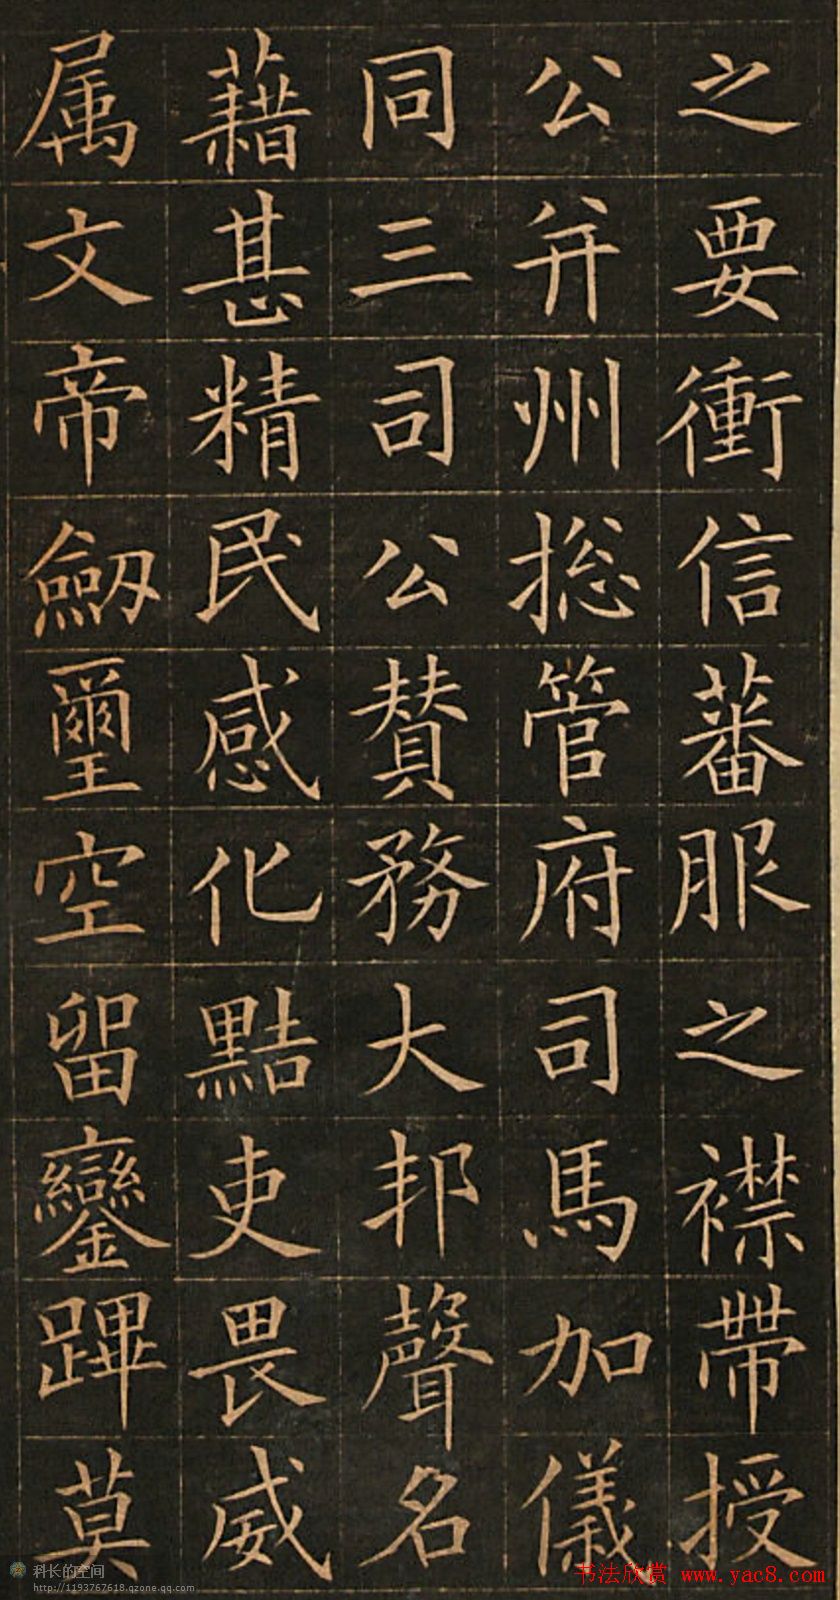 之要衝信蕃服之襟帶授
公并州揔管府司馬加儀
同三司公賛務大邦聲名
藉甚精民感化黠吏畏威
属文帝劒璽空留鑾蹕莫
科长的空间
http://1193767618.qzone.qq.com
书法欣赏 www.yac8.com